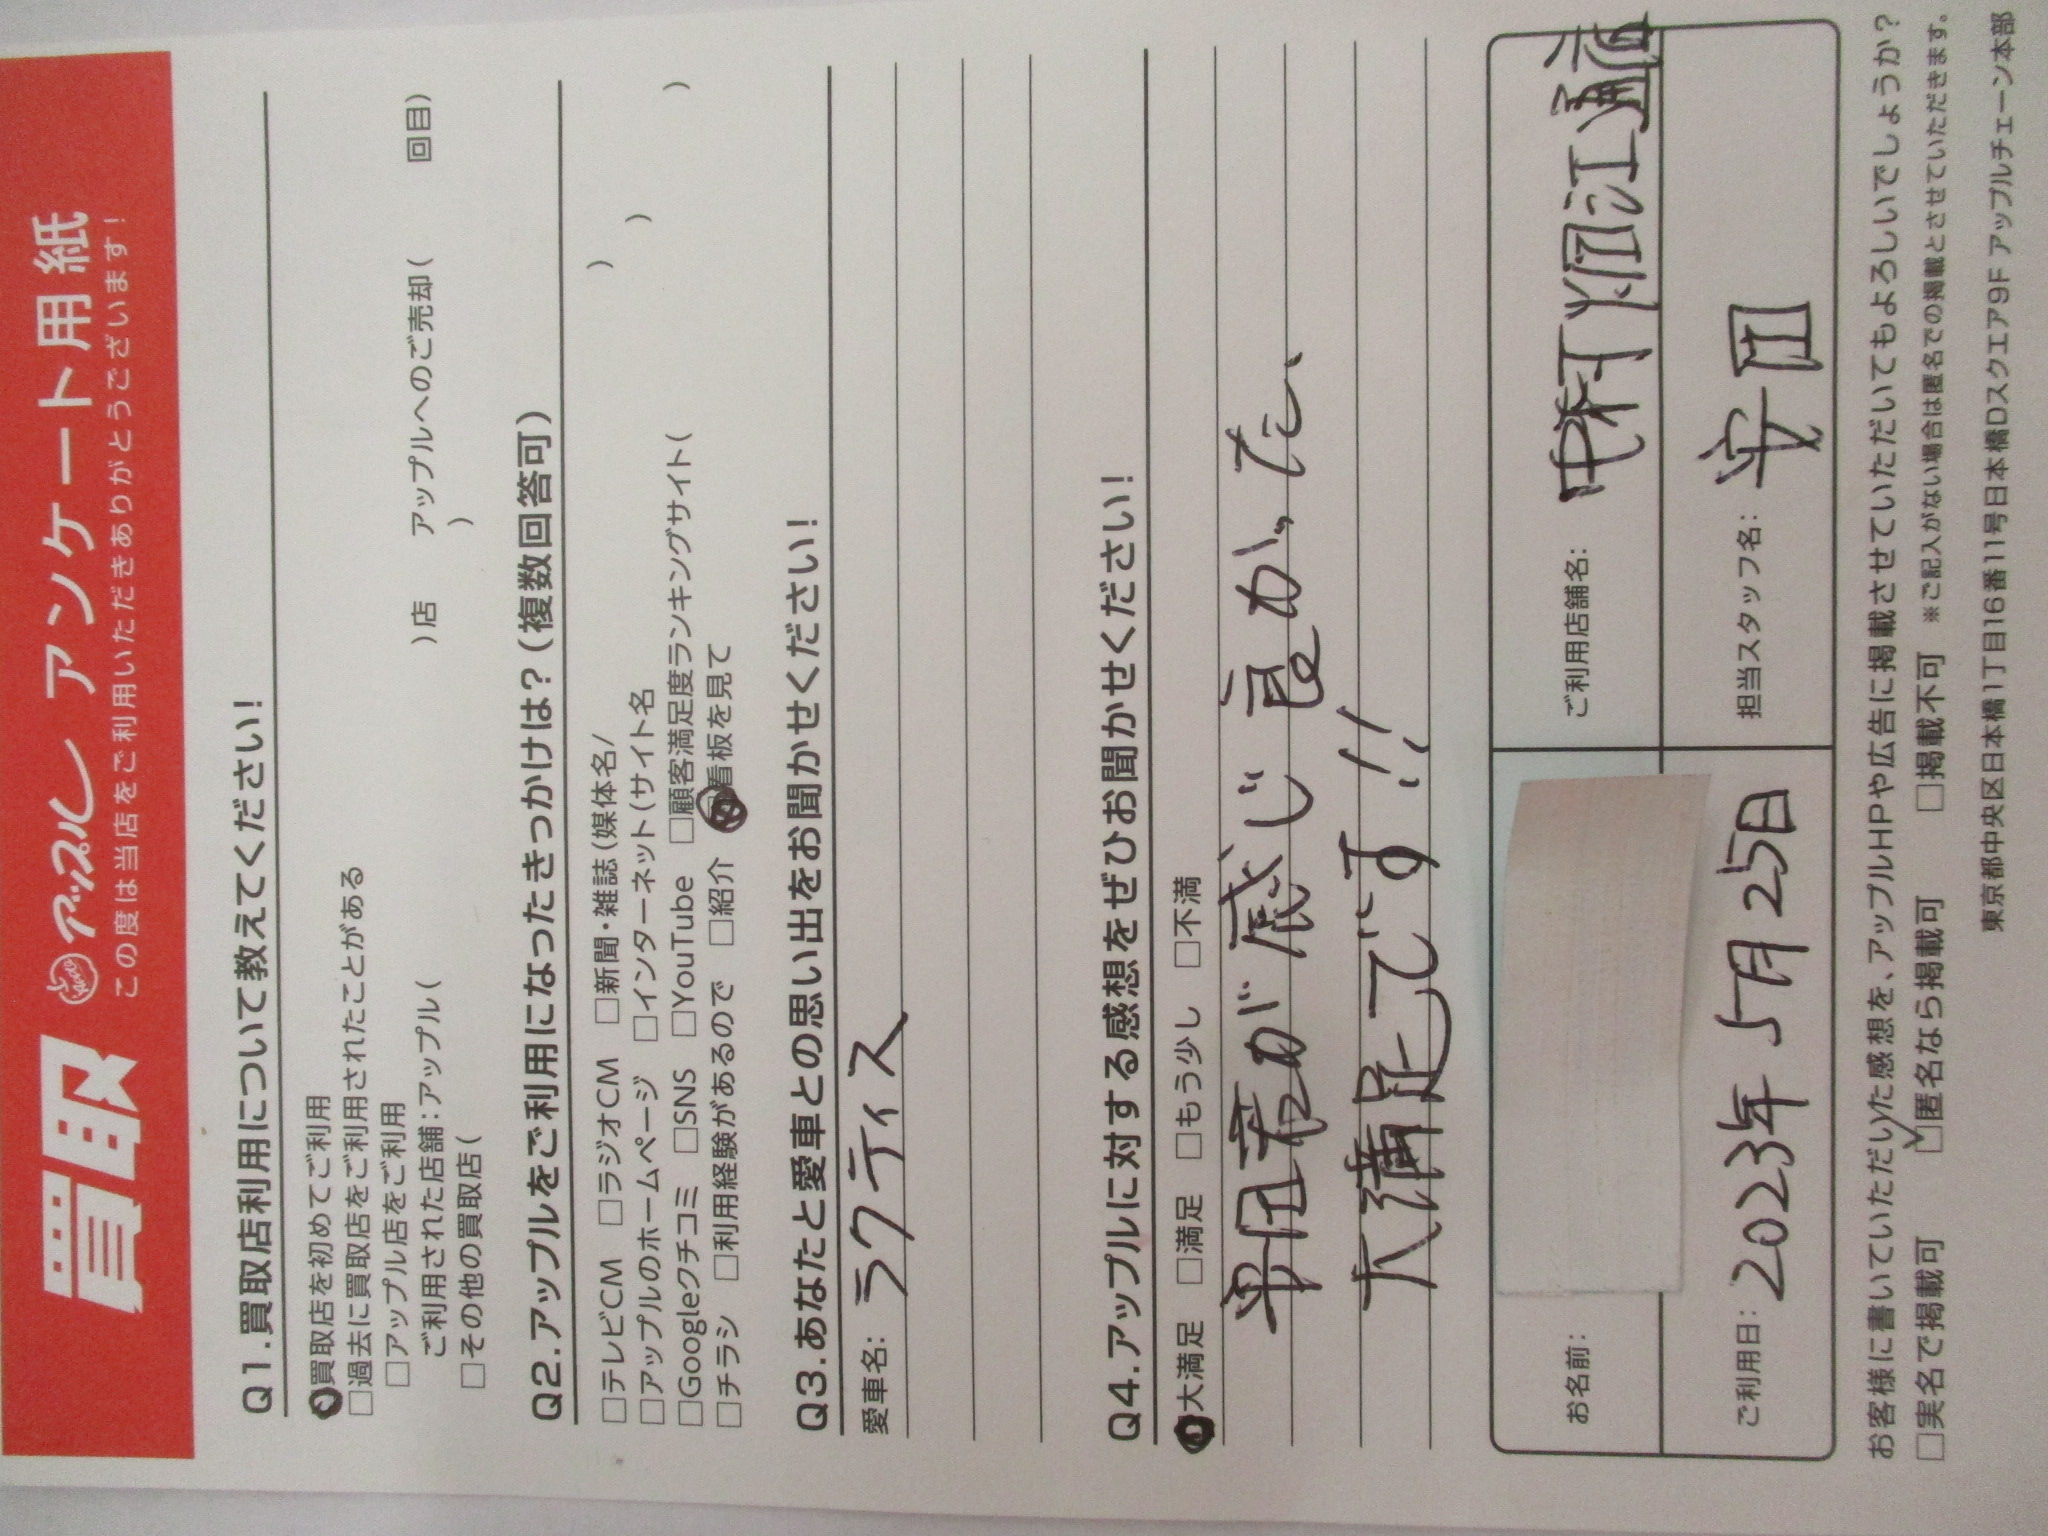 買取 アップル アンケート用紙
この度は当店をご利用いただきありがとうございます！
Q1.買取店利用について教えてください！
買取店を初めてご利用
□過去に買取店をご利用されたことがある
□アップル店をご利用
ご利用された店舗：アップル（ ）店 アップルへのご売却（ 回目）
□その他の買取店（ ）
Q2.アップルをご利用になったきっかけは？（複数回答可）
□テレビCM □ラジオCM □新聞・雑誌（媒体名/ ）
□アップルのホームページ □インターネット（サイト名 ）
□Googleクチコミ □SNS □YouTube □顧客満足度ランキングサイト（ ）
□チラシ □利用経験があるので □紹介 看板を見て
Q3.あなたと愛車との思い出をお聞かせください！
愛車名： ラクティス
Q4.アップルに対する感想をぜひお聞かせください！
大満足 □満足 □もう少し □不満
平田君が感じ良かった、
大満足です!!
お名前： ご利用店舗名： 中村 江通店
ご利用日： 2023年5月25日 担当スタッフ名： 平田
お客様に書いていただいた感想を、アップルHPや広告に掲載させていただいてもよろしいでしょうか？
□実名で掲載可 □匿名なら掲載可 □掲載不可 ※ご記入がない場合は匿名での掲載とさせていただきます。
東京都中央区日本橋1丁目16番11号日本橋Dスクエア9F アップルチェーン本部